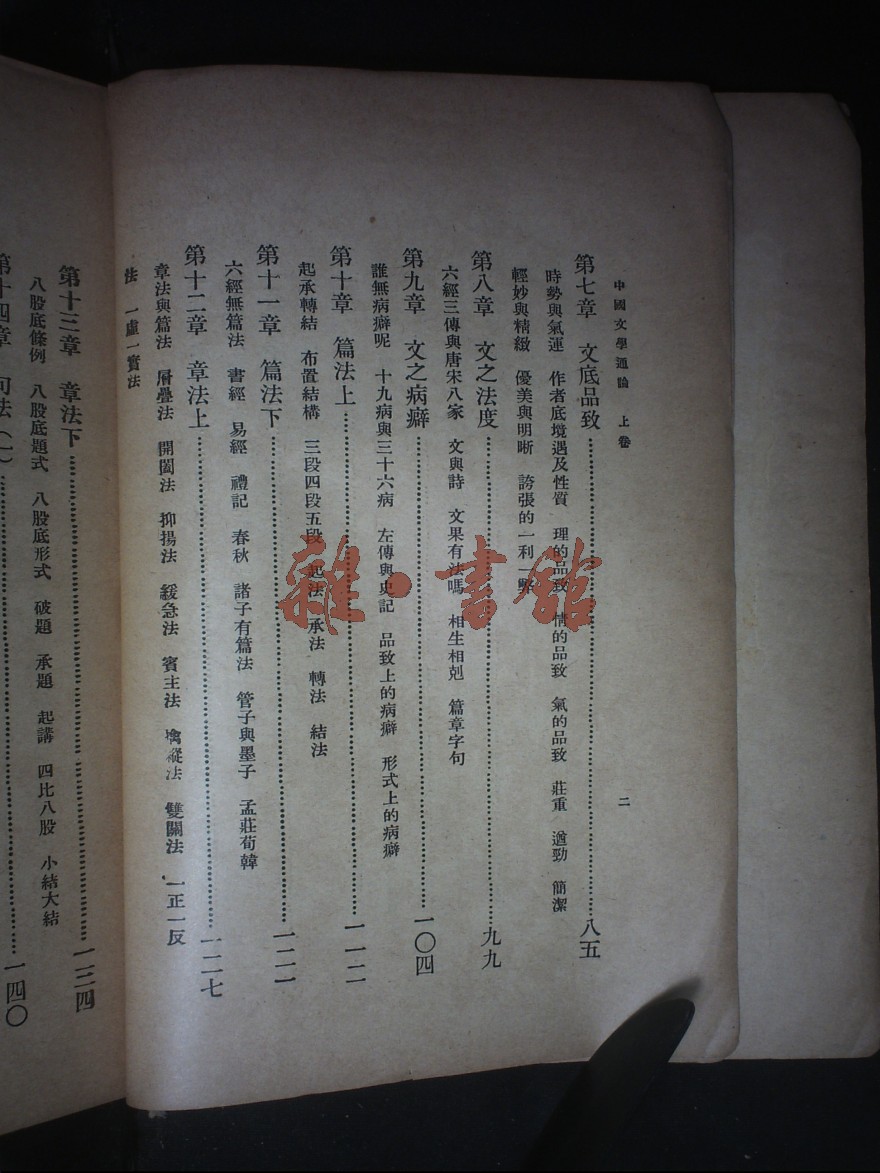 中國文學通論 上卷
二
第七章 文底品致……八五
時勢與氣運 作者底境遇及性質 理的品致 情的品致 氣的品致 莊重 遒勁 簡潔
輕妙與精緻 優美與明晰 誇張的一利一弊
第八章 文之法度……九九
六經三傳與唐宋八家 文與詩 文果有法嗎 相生相剋 篇章字句
第九章 文之病癖……一〇四
誰無病癖呢 十九病與三十六病 左傳與史記 品致上的病癖 形式上的病癖
第十章 篇法上……一一二
起承轉結 布置結構 三段四段五段 起法 承法 轉法 結法
第十一章 篇法下……一二一
六經無篇法 書經 易經 禮記 春秋 諸子有篇法 管子與墨子 孟莊荀韓
第十二章 章法上……一二七
章法與篇法 層疊法 開闔法 抑揚法 緩急法 賓主法 擒縱法 雙關法 一正一反
法 一虛一實法
第十三章 章法下……一三四
八股底條例 八股底題式 八股底形式 破題 承題 起講 四比八股 小結大結
第十四章 句法(一)……一四〇
雜·書館